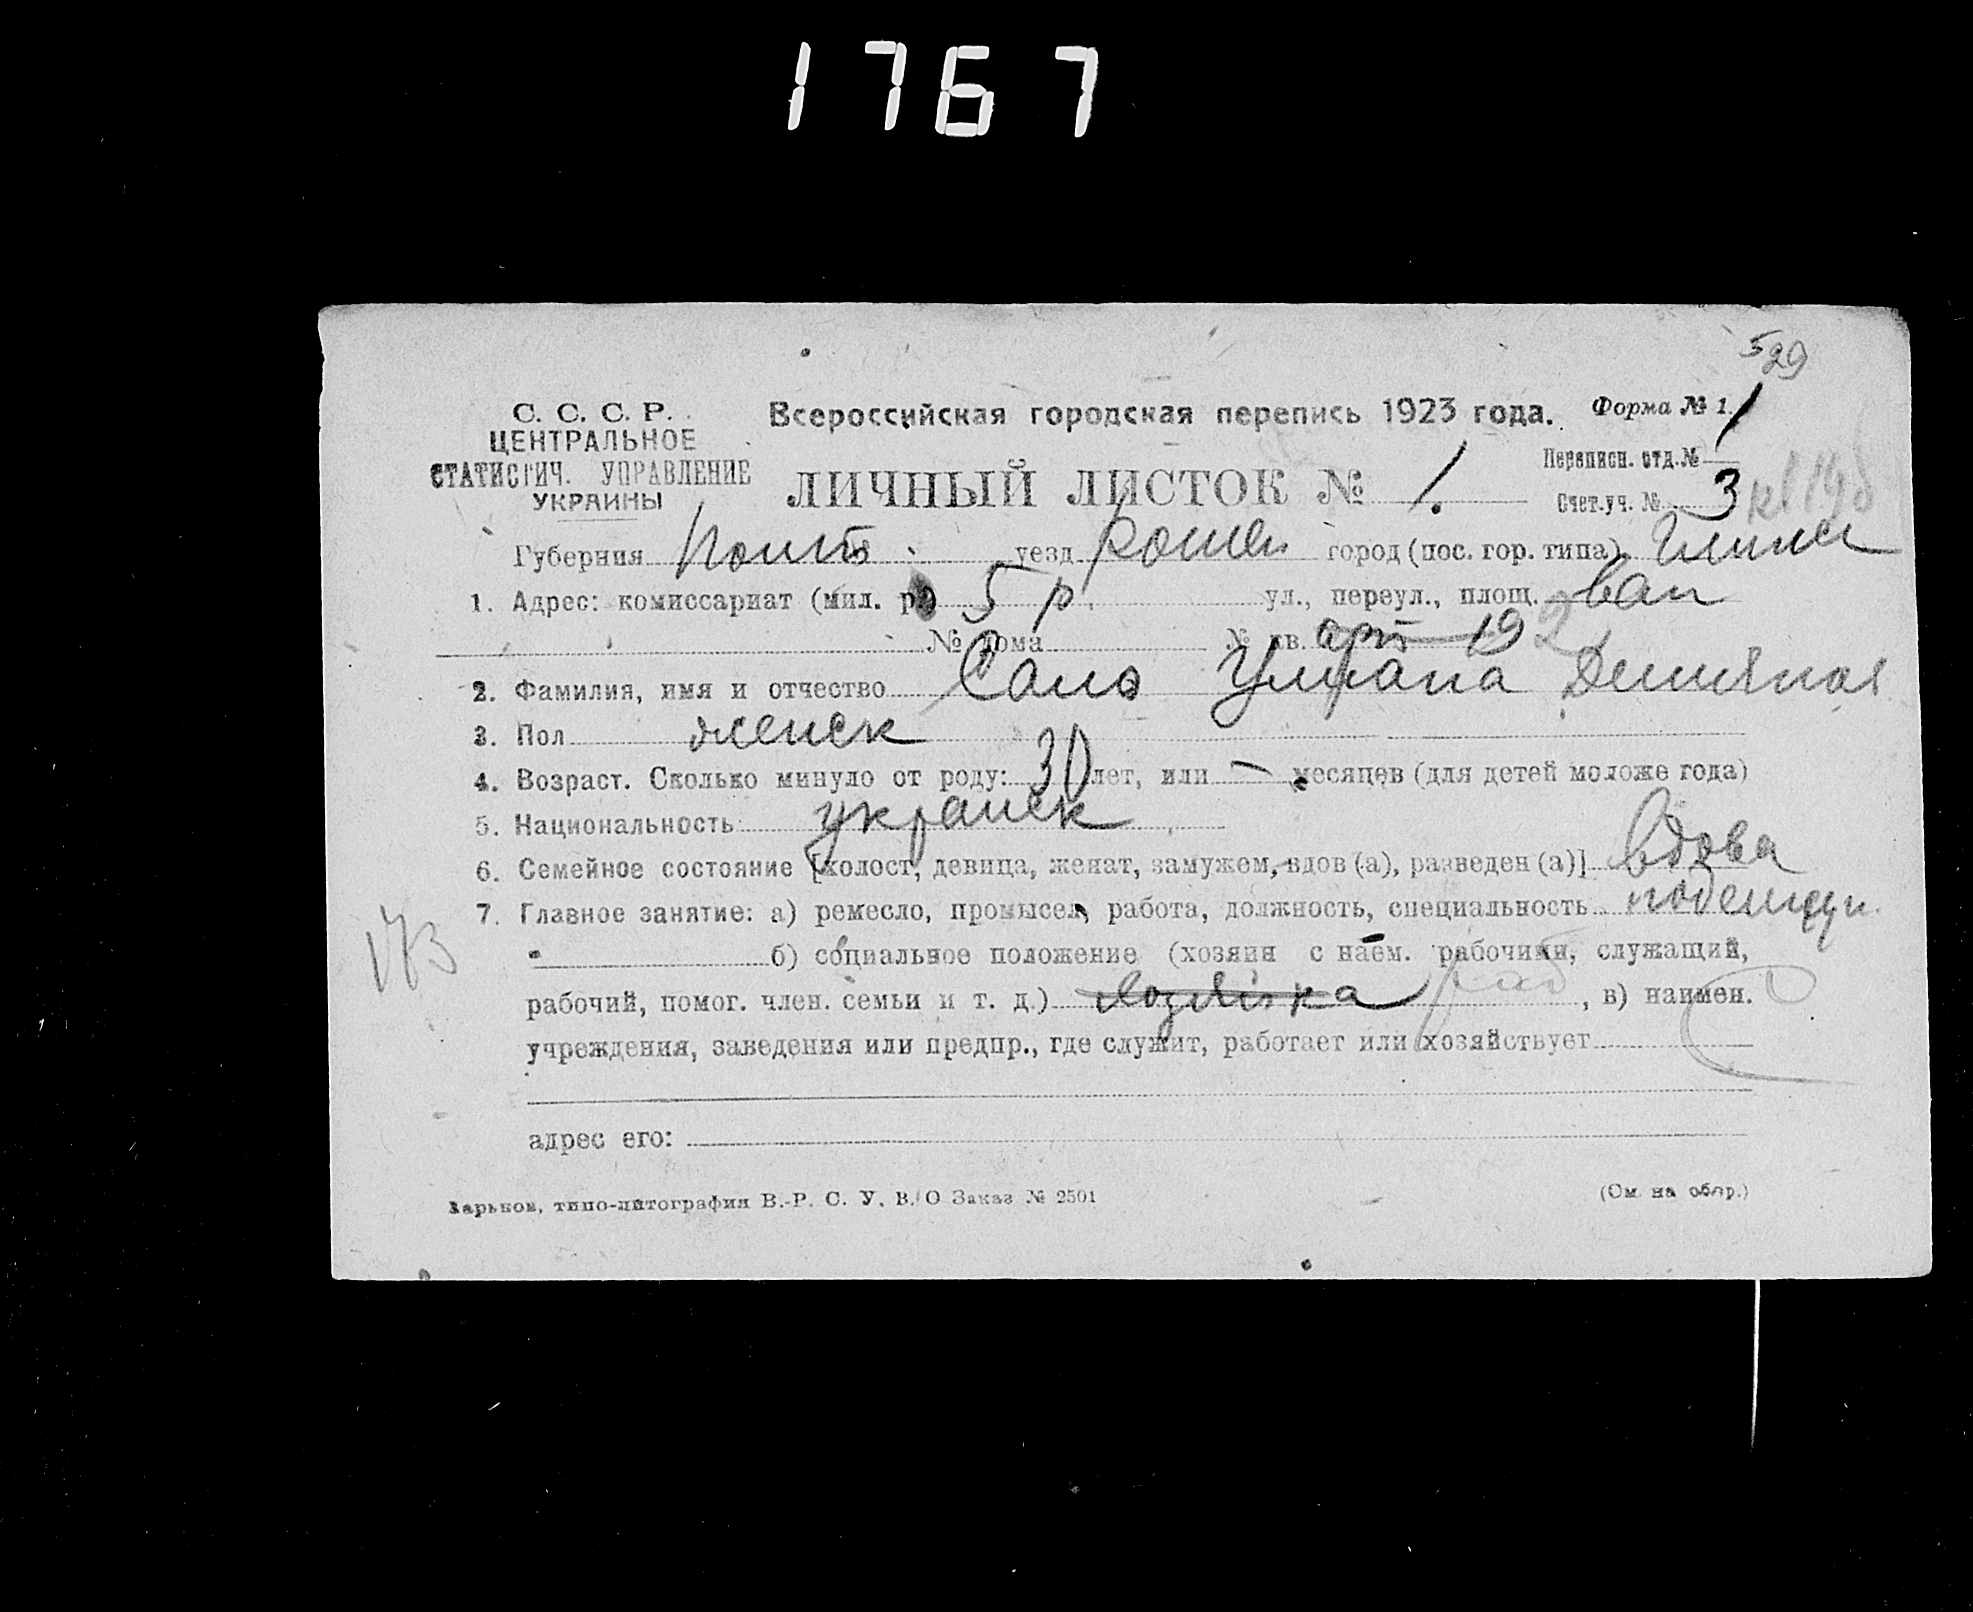 1767
529
С. С. С. Р.
ЦЕНТРАЛЬНОЕ
СТАТИСТИЧ. УПРАВЛЕНИЕ
УКРАИНЫ
Всероссийская городская перепись 1923 года. Форма № 1.
ЛИЧНЫЙ ЛИСТОК № 1.
Переписн. отд. № 1
Счет. уч. № 3
Губерния Полт уезд Ромен город (пос. гор. типа)
1. Адрес: комиссариат (мил. р 5 р. ул., переул., площ.
№ дома № кв. 19 2
2. Фамилия, имя и отчество Сало Ульяна
3. Пол женск
4. Возраст. Сколько минуло от роду: 30 лет, или — месяцев (для детей моложе года)
5. Национальность украинск
6. Семейное состояние [холост, девица, женат, замужем, вдов (а), разведен (а)] вдова
7. Главное занятие: а) ремесло, промысел, работа, должность, специальность поденщи
173
б) социальное положение (хозяин с наем. рабочими, служащий,
рабочий, помог. член. семьи и т. д.) хозяйка раб, в) наимен.
учреждения, заведения или предпр., где служит, работает или хозяйствует
адрес его:
Харьков, типо-литография В.-Р. С. У. В. О Заказ № 2501
(См. на обор.)